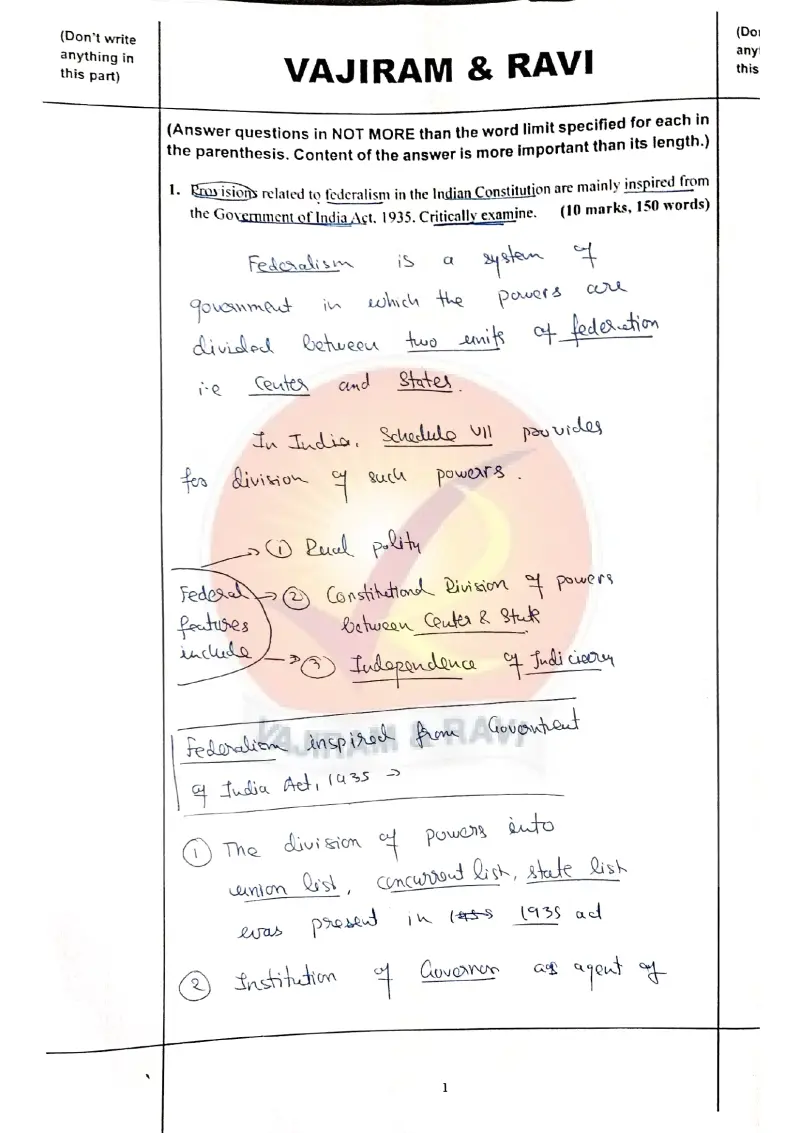 (Don't write
anything in
this part)
VAJIRAM & RAVI
(Do
any
this
(Answer questions in NOT MORE than the word limit specified for each in
the parenthesis. Content of the answer is more important than its length.)
1. Provisions related to federalism in the Indian Constitution are mainly inspired from
the Government of India Act, 1935. Critically examine. (10 marks, 150 words)
Federalism is a system of
government in which the powers are
divided between two units of federation
i.e Center and States.
In India, Schedule VII provides
for division of such powers.
Federal
features
include
→ ① Dual polity
→ ② Constitutional Division of powers
between Center & State
→ ③ Independence of Judiciary
VAJIRAM & RAVI
Federalism inspired from Government
of India Act, 1935 →
① The division of powers into
union list, concurrent list, state list
was present in 1935 act
② Institution of Governor as agent of
1